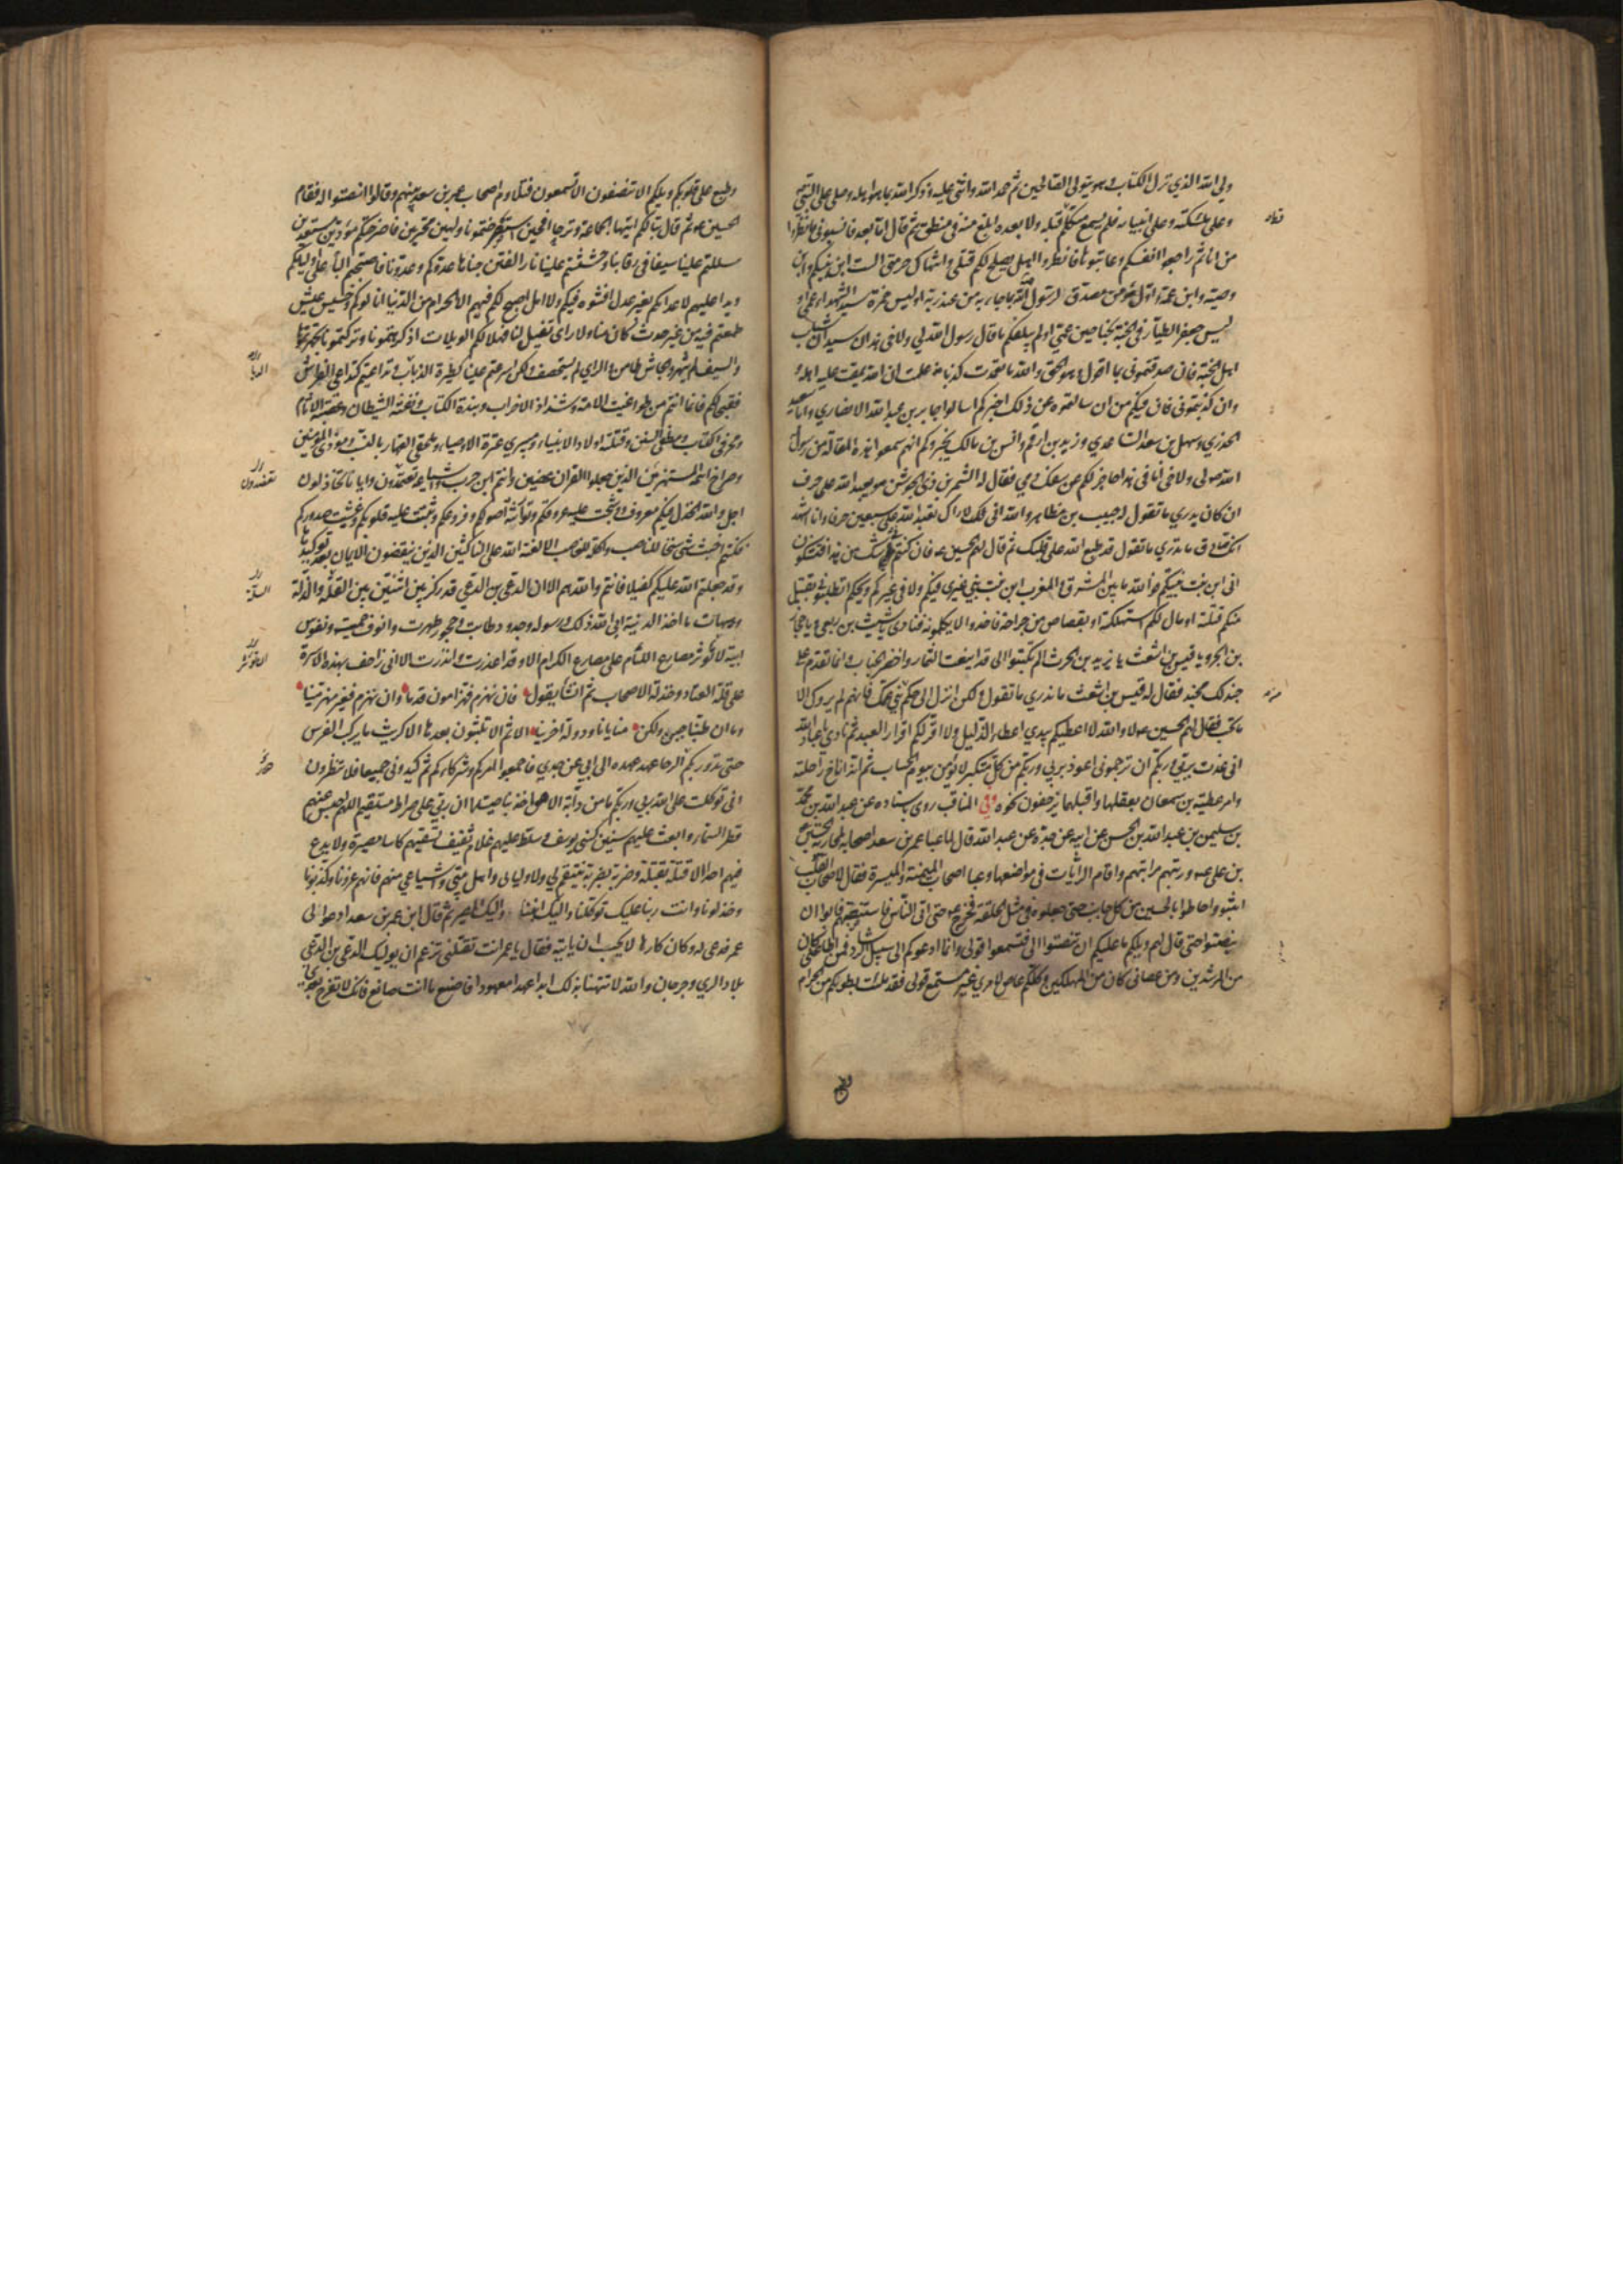 ولي الله الذي نزل الكتاب وهو يتولى الصالحين ثم حمد الله واثنى عليه وذكر الله بما هو اهله وصلى على النبي
وعلى ملئكته وعلى انبيائه فلم يسمع متكلم قبله ولا بعده ابلغ منه في منطق ثم قال اما بعد فانسبوني فانظروا
من انا ثم راجعوا انفسكم وعاتبوها فانظروا هل يصلح لكم قتلي وانتهاك حرمتي الست ابن نبيكم وابن
وصيه وابن عمه واول مؤمن مصدق لرسول الله بما جاء به من عند ربه اوليس حمزة سيد الشهداء عمي او
ليس جعفر الطيار في الجنة بجناحين عمي اولم يبلغكم ما قال رسول الله لي ولاخي هذان سيدا شباب
اهل الجنة فان صدقتموني بما اقول وهو الحق والله ما تعمدت كذبا مذ علمت ان الله يمقت عليه اهله
وان كذبتموني فان فيكم من ان سالتموه عن ذلك اخبركم اسالوا جابر بن عبد الله الانصاري وابا سعيد
الخدري وسهل بن سعد الساعدي وزيد بن ارقم وانس بن مالك يخبروكم انهم سمعوا هذه المقالة من رسول
الله ص لي ولاخي اما في هذا حاجز لكم عن سفك دمي فقال له الشمر بن ذي الجوشن هو يعبد الله على حرف
ان كان يدري ما تقول له حبيب بن مظاهر والله اني لاراك تعبد الله على سبعين حرفا وانا اشهد
انك صادق ما تدري ما تقول قد طبع الله على قلبك ثم قال لهم الحسين ع فان كنتم في شك من هذا افتشكون
اني ابن بنت نبيكم فوالله ما بين المشرق والمغرب ابن بنت نبي غيري فيكم ولا في غيركم ويحكم اتطلبوني بقتيل
منكم قتلته او مال لكم استهلكته او بقصاص من جراحة فاخذوا لا يكلمونه فنادى يا شبث بن ربعي ويا حجار
بن ابجر ويا قيس بن اشعث يا يزيد بن الحرث الم تكتبوا الي قد اينعت الثمار واخضر الجناب وانما تقدم على
جند لك مجند فقال له قيس بن اشعث ما ندري ما تقول ولكن انزل الى حكم بني عمك فانهم لم يروك الا
ما تحب فقال لهم الحسين ع لا والله لا اعطيكم بيدي اعطاء الذليل ولا اقر لكم اقرار العبيد ثم نادى يا عباد الله
اني عذت بربي وربكم ان ترجموني اعوذ بربي وربكم من كل متكبر لا يؤمن بيوم الحساب ثم انه اناخ راحلته
وامر عقبة بن سمعان بعقلها واقبلوا يزحفون نحوه وفي المناقب روى باسناده عن عبد الله بن محمد
بن سليمن بن عبد الله بن الحسن عن ابيه عن جده عن عبد الله قال لما عبا عمر بن سعد اصحابه لمحاربة الحسين
بن علي ع ورتبهم مراتبهم واقام الرايات في مواضعها وعبا اصحاب الميمنة والميسرة فقال لاصحاب القلب
اثبتوا واحاطوا بالحسين من كل جانب حتى جعلوه في مثل الحلقة فخرج ع حتى اتى الناس فاستنصتهم فابوا ان
ينصتوا حتى قال لهم ويلكم ما عليكم ان تنصتوا الي فتسمعوا قولي وانما ادعوكم الى سبيل الرشاد فمن اطاعني كان
من المرشدين ومن عصاني كان من المهلكين وكلكم عاص لامري غير مستمع قولي فقد ملئت بطونكم من الحرام
وطبع على قلوبكم ويلكم الا تنصفون الا تسمعون فتلاوم اصحاب عمر بن سعد بينهم وقالوا انصتوا له فقام
الحسين ع ثم قال تبا لكم ايتها الجماعة وترحا افحين استصرختمونا ولهين متحيرين فاصرختكم مؤدين مستعدين
سللتم علينا سيفا في رقابنا وحششتم علينا نار الفتن جناها عدوكم وعدونا فاصبحتم البا على اوليائكم
ويدا عليهم لاعدائكم بغير عدل افشوه فيكم ولا امل اصبح لكم فيهم الا الحرام من الدنيا انالوكم وخسيس عيش
طمعتم فيه من غير حدث كان منا ولا راي تفيل لنا فهلا لكم الويلات اذ كرهتمونا وتركتمونا تجهزتموها
والسيف لم يشهر والجاش طامن والراي لم يستحصف ولكن اسرعتم علينا كطيرة الذباب وتداعيتم كتداعي الفراش
فقبحا لكم فانما انتم من طواغيت الامة وشذاذ الاحزاب ونبذة الكتاب ونفثة الشيطان وعصبة الاثام
ومحرفي الكتاب ومطفئ السنن وقتلة اولاد الانبياء ومبيري عترة الاوصياء وملحقي العهار بالنسب ومؤذي المؤمنين
وصراخ ائمة المستهزئين الذين جعلوا القران عضين وانتم ابن حرب واشياعه تعتمدون وايانا تخاذلون
اجل والله الخذل فيكم معروف وشجت عليه عروقكم وتوارثته اصولكم وفروعكم وثبتت عليه قلوبكم وغشيت صدوركم
فكنتم اخبث شئ سنخا للناصب واكلة للغاصب الا لعنة الله على الناكثين الذين ينقضون الايمان بعد توكيدها
وقد جعلتم الله عليكم كفيلا فانتم والله هم الا ان الدعي بن الدعي قد ركز بين اثنتين بين القلة والذلة
وهيهات ما اخذ الدنية ابى الله ذلك ورسوله وجدود طابت وحجور طهرت وانوف حمية ونفوس
ابية لا تؤثر مصارع اللئام على مصارع الكرام الا وقد اعذرت وانذرت الا اني زاحف بهذه الاسرة
على قلة العتاد وخذلة الاصحاب ثم انشأ يقول فان نهزم فهزامون قدما وان نهزم فغير مهزمينا
وما ان طبنا جبن ولكن منايانا ودولة اخرينا الا ثم لا تلبثون بعدها الا كريث ما يركب الفرس
حتى تدور بكم الرحا عهد عهده الي ابي عن جدي فاجمعوا امركم وشركاءكم ثم كيدوني جميعا فلا تنظرون
اني توكلت على الله ربي وربكم ما من دابة الا هو اخذ بناصيتها ان ربي على صراط مستقيم اللهم احبس عنهم
قطر السماء وابعث عليهم سنين كسني يوسف وسلط عليهم غلام ثقيف يسقيهم كاسا مصبرة ولا يدع
فيهم احدا الا قتلة بقتلة وضربة بضربة ينتقم لي ولاوليائي واهل بيتي واشياعي منهم فانهم غرونا وكذبونا
وخذلونا وانت ربنا عليك توكلنا واليك انبنا واليك المصير ثم قال اين عمر بن سعد ادعوا لي
عمر فدعي له وكان كارها لا يحب ان ياتيه فقال يا عمر انت تقتلني تزعم ان يوليك الدعي بن الدعي
بلاد الري وجرجان والله لا تتهنا بذلك ابدا عهدا معهودا فاصنع ما انت صانع فانك لا تفرح بعدي